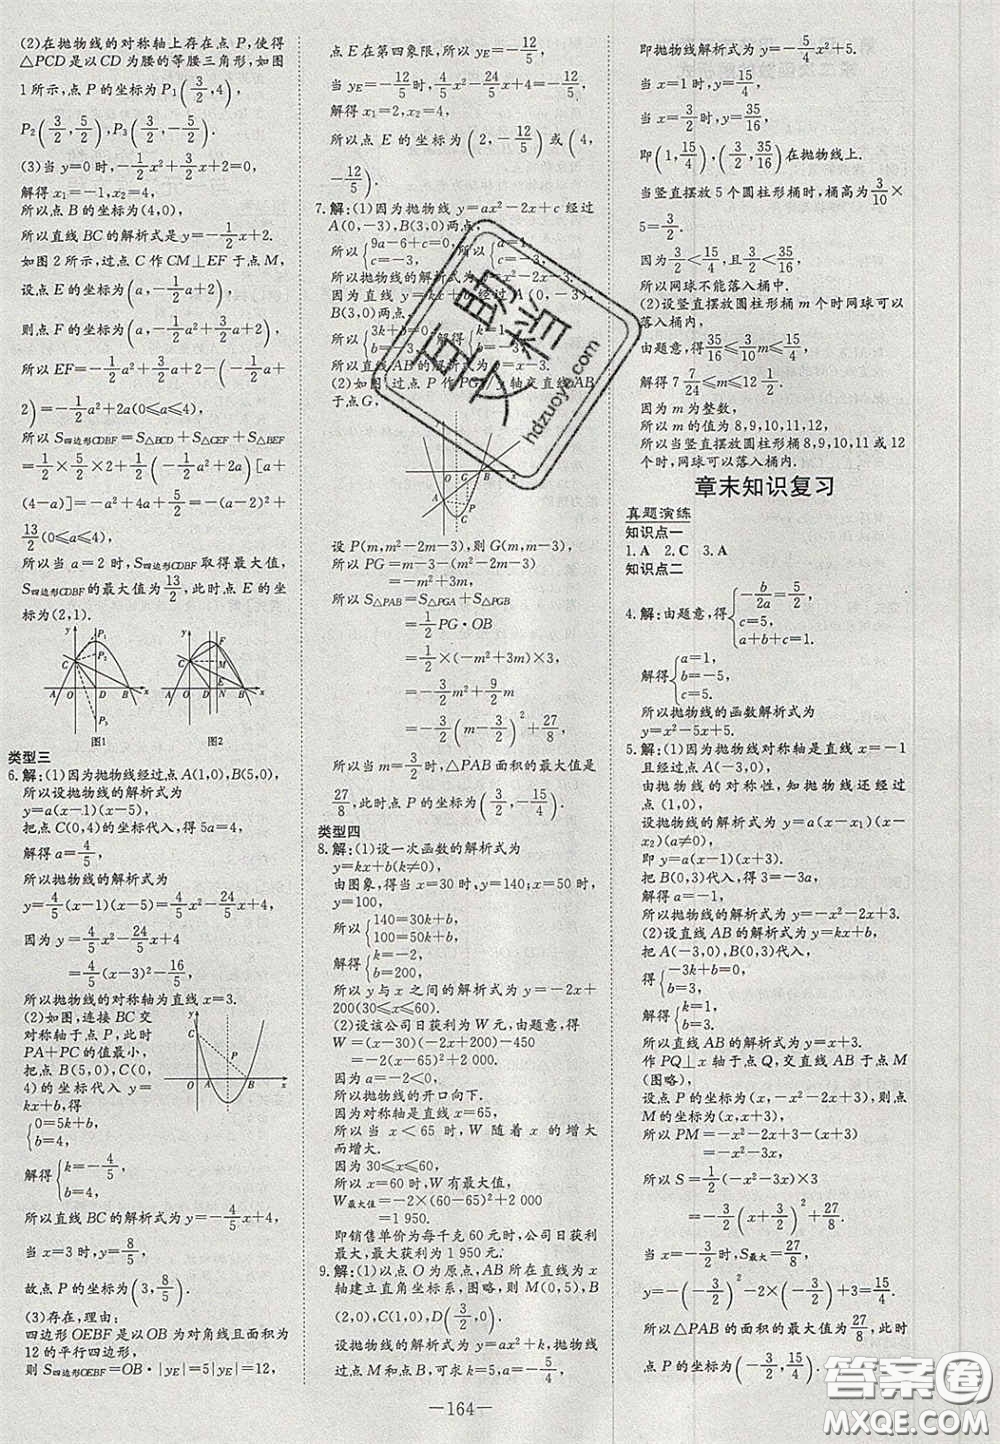 (2)在抛物线的对称轴上存在点 P,使得
△PCD 是以 CD 为腰的等腰三角形,如图
1 所示,点 P 的坐标为 P₁(3/2,4),
P₂(3/2,5/2),P₃(3/2,-5/2).
(3)当 y=0 时,-1/2x²+3/2x+2=0,
解得 x₁=-1,x₂=4,
所以点 B 的坐标为(4,0),
所以直线 BC 的解析式是 y=-1/2x+2.
如图 2 所示,过点 C 作 CM⊥EF 于点 M,
设点 E 的坐标为(a,-1/2a+2),
则点 F 的坐标为(a,-1/2a²+3/2a+2),
所以 EF=-1/2a²+3/2a+2-(-1/2a+
2)=-1/2a²+2a(0≤a≤4),
所以 S四边形CDBF=S△BCD+S△CEF+S△BEF
=1/2×5/2×2+1/2(-1/2a²+2a)[a+
(4-a)]=-a²+4a+5/2=-(a-2)²+
13/2(0≤a≤4).
所以当 a=2 时,四边形CDBF 取得最大值,
S四边形CDBF的最大值为13/2,此时点 E 的坐
标为(2,1).
y P₁ P₂ C A O D B x P₃ 图1
y F C M E A O D N B x 图2
类型三
6.解:(1)因为抛物线经过点 A(1,0),B(5,0),
所以设抛物线的解析式为
y=a(x-1)(x-5).
把点 C(0,4)的坐标代入,得 5a=4,
解得 a=4/5,
所以抛物线的解析式为
y=4/5(x-1)(x-5)=4/5x²-24/5x+4,
因为 y=4/5x²-24/5x+4
=4/5(x-3)²-16/5,
所以抛物线的对称轴为直线 x=3.
(2)如图,连接 BC 交
对称轴于点 P,此时
PA+PC 的值最小,
把点 B(5,0),C(0,
4)的坐标代入 y=
kx+b,得
{0=5k+b,
b=4,
解得{k=-4/5,
b=4,
y C P O A B x
所以直线 BC 的解析式为 y=-4/5x+4,
当 x=3 时,y=8/5,
故点 P 的坐标为(3,8/5).
(3)存在,理由:
四边形 OEBF 是以 OB 为对角线且面积为
12 的平行四边形,
则 S四边形OEBF=OB·|yE|=5|yE|=12,
点 E 在第四象限,所以 yE=-12/5,
当 yE=-12/5时,-12/5=4/5x²-24/5x+4=-12/5,
解得 x₁=2,x₂=4,
所以点 E 的坐标为(2,-12/5)或(4,
-12/5).
7.解:(1)因为抛物线 y=ax²-2x+c 经过
A(0,-3),B(3,0)两点,
所以{9a-6+c=0, c=-3, 所以{a=1, c=-3,
所以抛物线的解析式为 y=x²-2x-3.
因为直线 y=kx+b 经过 A(0,-3),
B(3,0)两点,
所以{3k+b=0, b=-3, 解得{k=1, b=-3,
所以直线 AB 的解析式为 y=x-3.
(2)如图,过点 P 作 PG∥y 轴交直线 AB
于点 G,
O G B x A P
设 P(m,m²-2m-3),则 G(m,m-3),
所以 PG=m-3-(m²-2m-3)
=-m²+3m,
所以 S△PAB=S△PGA+S△PGB
=1/2PG·OB
=1/2×(-m²+3m)×3
=-3/2m²+9/2m
=-3/2(m-3/2)²+27/8,
所以当 m=3/2时,△PAB 面积的最大值是
27/8,此时点 P 的坐标为(3/2,-15/4).
类型四
8.解:(1)设一次函数的解析式为
y=kx+b(k≠0),
由图象,得当 x=30 时,y=140;x=50 时,
y=100,
所以{140=30k+b,
100=50k+b,
解得{k=-2,
b=200,
所以 y 与 x 之间的解析式为 y=-2x+
200(30≤x≤60).
(2)设该公司日获利为 W 元,由题意,得
W=(x-30)(-2x+200)-450
=-2(x-65)²+2 000.
因为 a=-2<0,
所以抛物线的开口向下.
因为对称轴是直线 x=65,
所以当 x<65 时,W 随着 x 的增大
而增大.
因为 30≤x≤60,
所以 x=60 时,W 有最大值,
W最大值=-2×(60-65)²+2 000
=1 950.
即销售单价为每千克 60 元时,公司日获利
最大,最大获利为 1 950 元.
9.解:(1)以点 O 为原点,AB 所在直线为 x
轴建立直角坐标系,图略,则 M(0,5),B
(2,0),C(1,0),D(3/2,0).
设抛物线的解析式为 y=ax²+k,抛物线
过点 M 和点 B,可求 k=5,a=-5/4,
即抛物线解析式为 y=-5/4x²+5.
当 x=1 时,y=15/4;
当 x=3/2时,y=35/16,
即(1,15/4),(3/2,35/16)在抛物线上.
当竖直摆放 5 个圆柱形桶时,桶高为3/10×
5=3/2,
因为3/2<15/4,且3/2<35/16,
所以网球不能落入桶中.
(2)设竖直摆放圆柱形桶 m 个时网球可以
落入桶内,
由题意,得35/16≤3/10m≤15/4,
解得 7 7/24≤m≤12 1/2.
因为 m 为整数,
所以 m 的值为 8,9,10,11,12,
所以当竖直摆放圆柱形桶8,9,10,11 或 12
个时,网球可以落入桶内.
章末知识复习
真题演练
知识点一
1.A 2.C 3.A
知识点二
4.解:由题意,得{-b/2a=5/2,
c=5,
a+b+c=1.
解得{a=1,
b=-5,
c=5.
所以抛物线的函数解析式为
y=x²-5x+5.
5.解:(1)因为抛物线对称轴是直线 x=-1
且经过点 A(-3,0),
由抛物线的对称性,知抛物线还经过
点(1,0),
设抛物线的解析式为 y=a(x-x₁)(x-
x₂)(a≠0),
即 y=a(x-1)(x+3).
把 B(0,3)代入,得 3=-3a,
解得 a=-1,
所以抛物线的解析式为 y=-x²-2x+3.
(2)设直线 AB 的解析式为 y=kx+b,
把 A(-3,0),B(0,3)代入,
得{-3k+b=0,
b=3,
解得{k=1,
b=3.
所以直线 AB 的解析式为 y=x+3.
作 PQ⊥x 轴于点 Q,交直线 AB 于点 M
(图略),
设点 P 的坐标为(x,-x²-2x+3),则点
M 的坐标为(x,x+3),
所以 PM=-x²-2x+3-(x+3)
=-x²-3x,
所以 S=1/2(-x²-3x)×3
=-3/2(x+3/2)²+27/8.
当 x=-3/2时,S最大=27/8,
y=-(-3/2)²-2×(-3/2)+3=15/4.
所以△PAB 的面积的最大值为27/8,此时
点 P 的坐标为(-3/2,15/4).
-164-
互助文档
hdzuoye.com
答案圈
MXQE.COM